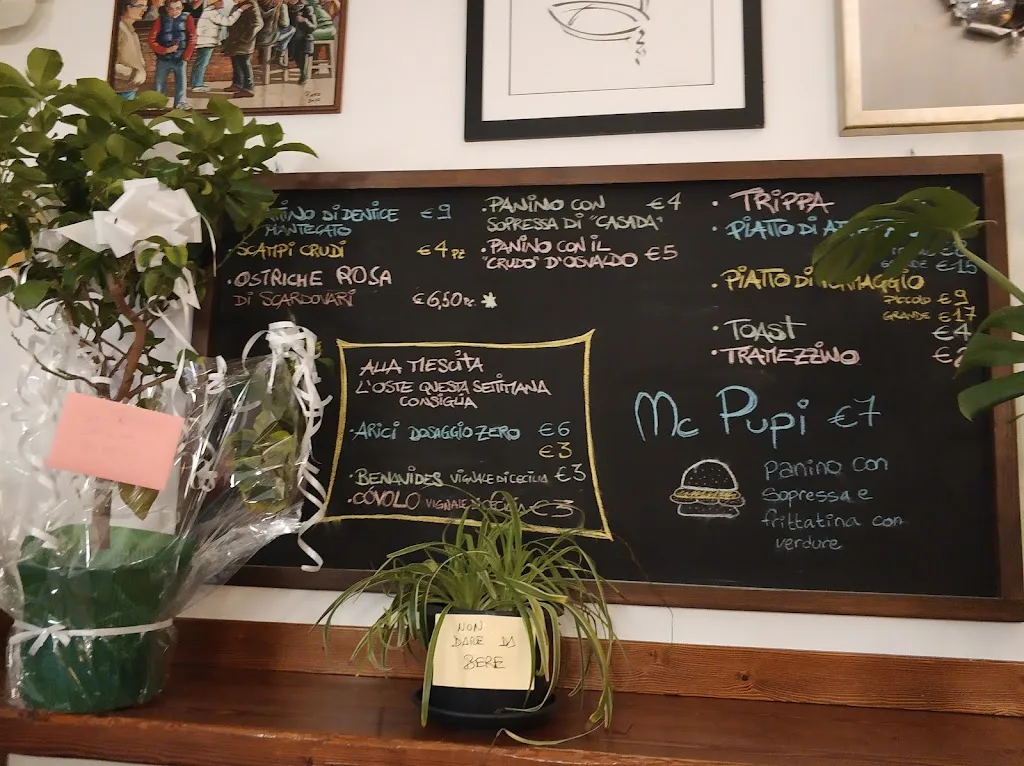 DI DENTICE €9
MANTECATO
• SCAMPI CRUDI €4 PZ
• OSTRICHE ROSA
DI SCARDOVARI €6,50 PZ. *
• PANINO CON €4
SOPRESSA DI "CASADA"
• PANINO CON IL
"CRUDO" D'OSVALDO €5
• TRIPPA
• PIATTO DI
€15
• PIATTO DI FORMAGGIO
PICCOLO €9
GRANDE €17
• TOAST €4
• TRAMEZZINO
ALLA MESCITA
L'OSTE QUESTA SETTIMANA
CONSIGLIA
• ARICI DOSAGGIO ZERO €6
€3
• BENAVIDES VIGNALE DI CECILIA €3
• CÓVOLO VIGNALE DI CECILIA €3
Mc Pupi €7
Panino con
Sopressa e
frittatina con
verdure
NON
DARE DA
BERE